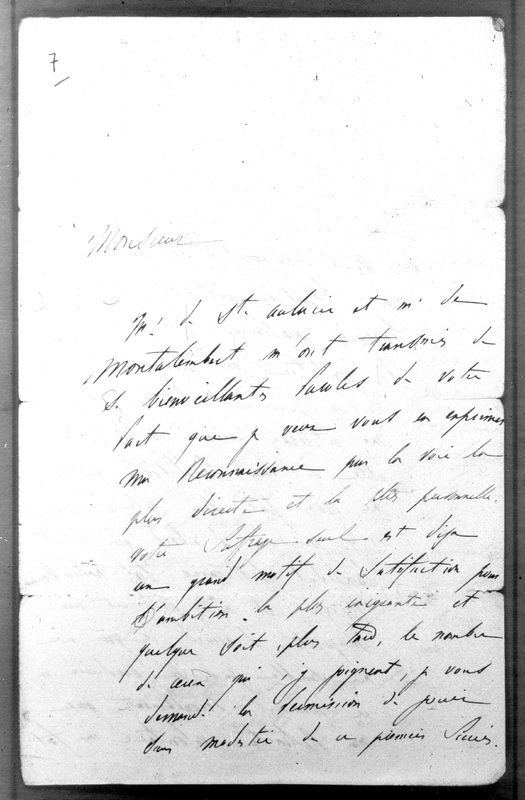 7
Monsieur
Mr de Ste aulaire et mr de
Montalembert m'ont transmis de
si bienveillantes paroles de votre
part que je veux vous en exprimer
ma Reconnaissance par la voie la
plus directe et la plus personnelle.
votre suffrage seul est deja
un grand motif de satisfaction pour
l'ambition la plus exigeante et
quelque soit, plus tard, le nombre
de ceux qui s'y joignent, je vous
demande la permission de jouir
sans modestie de ce premier succès.